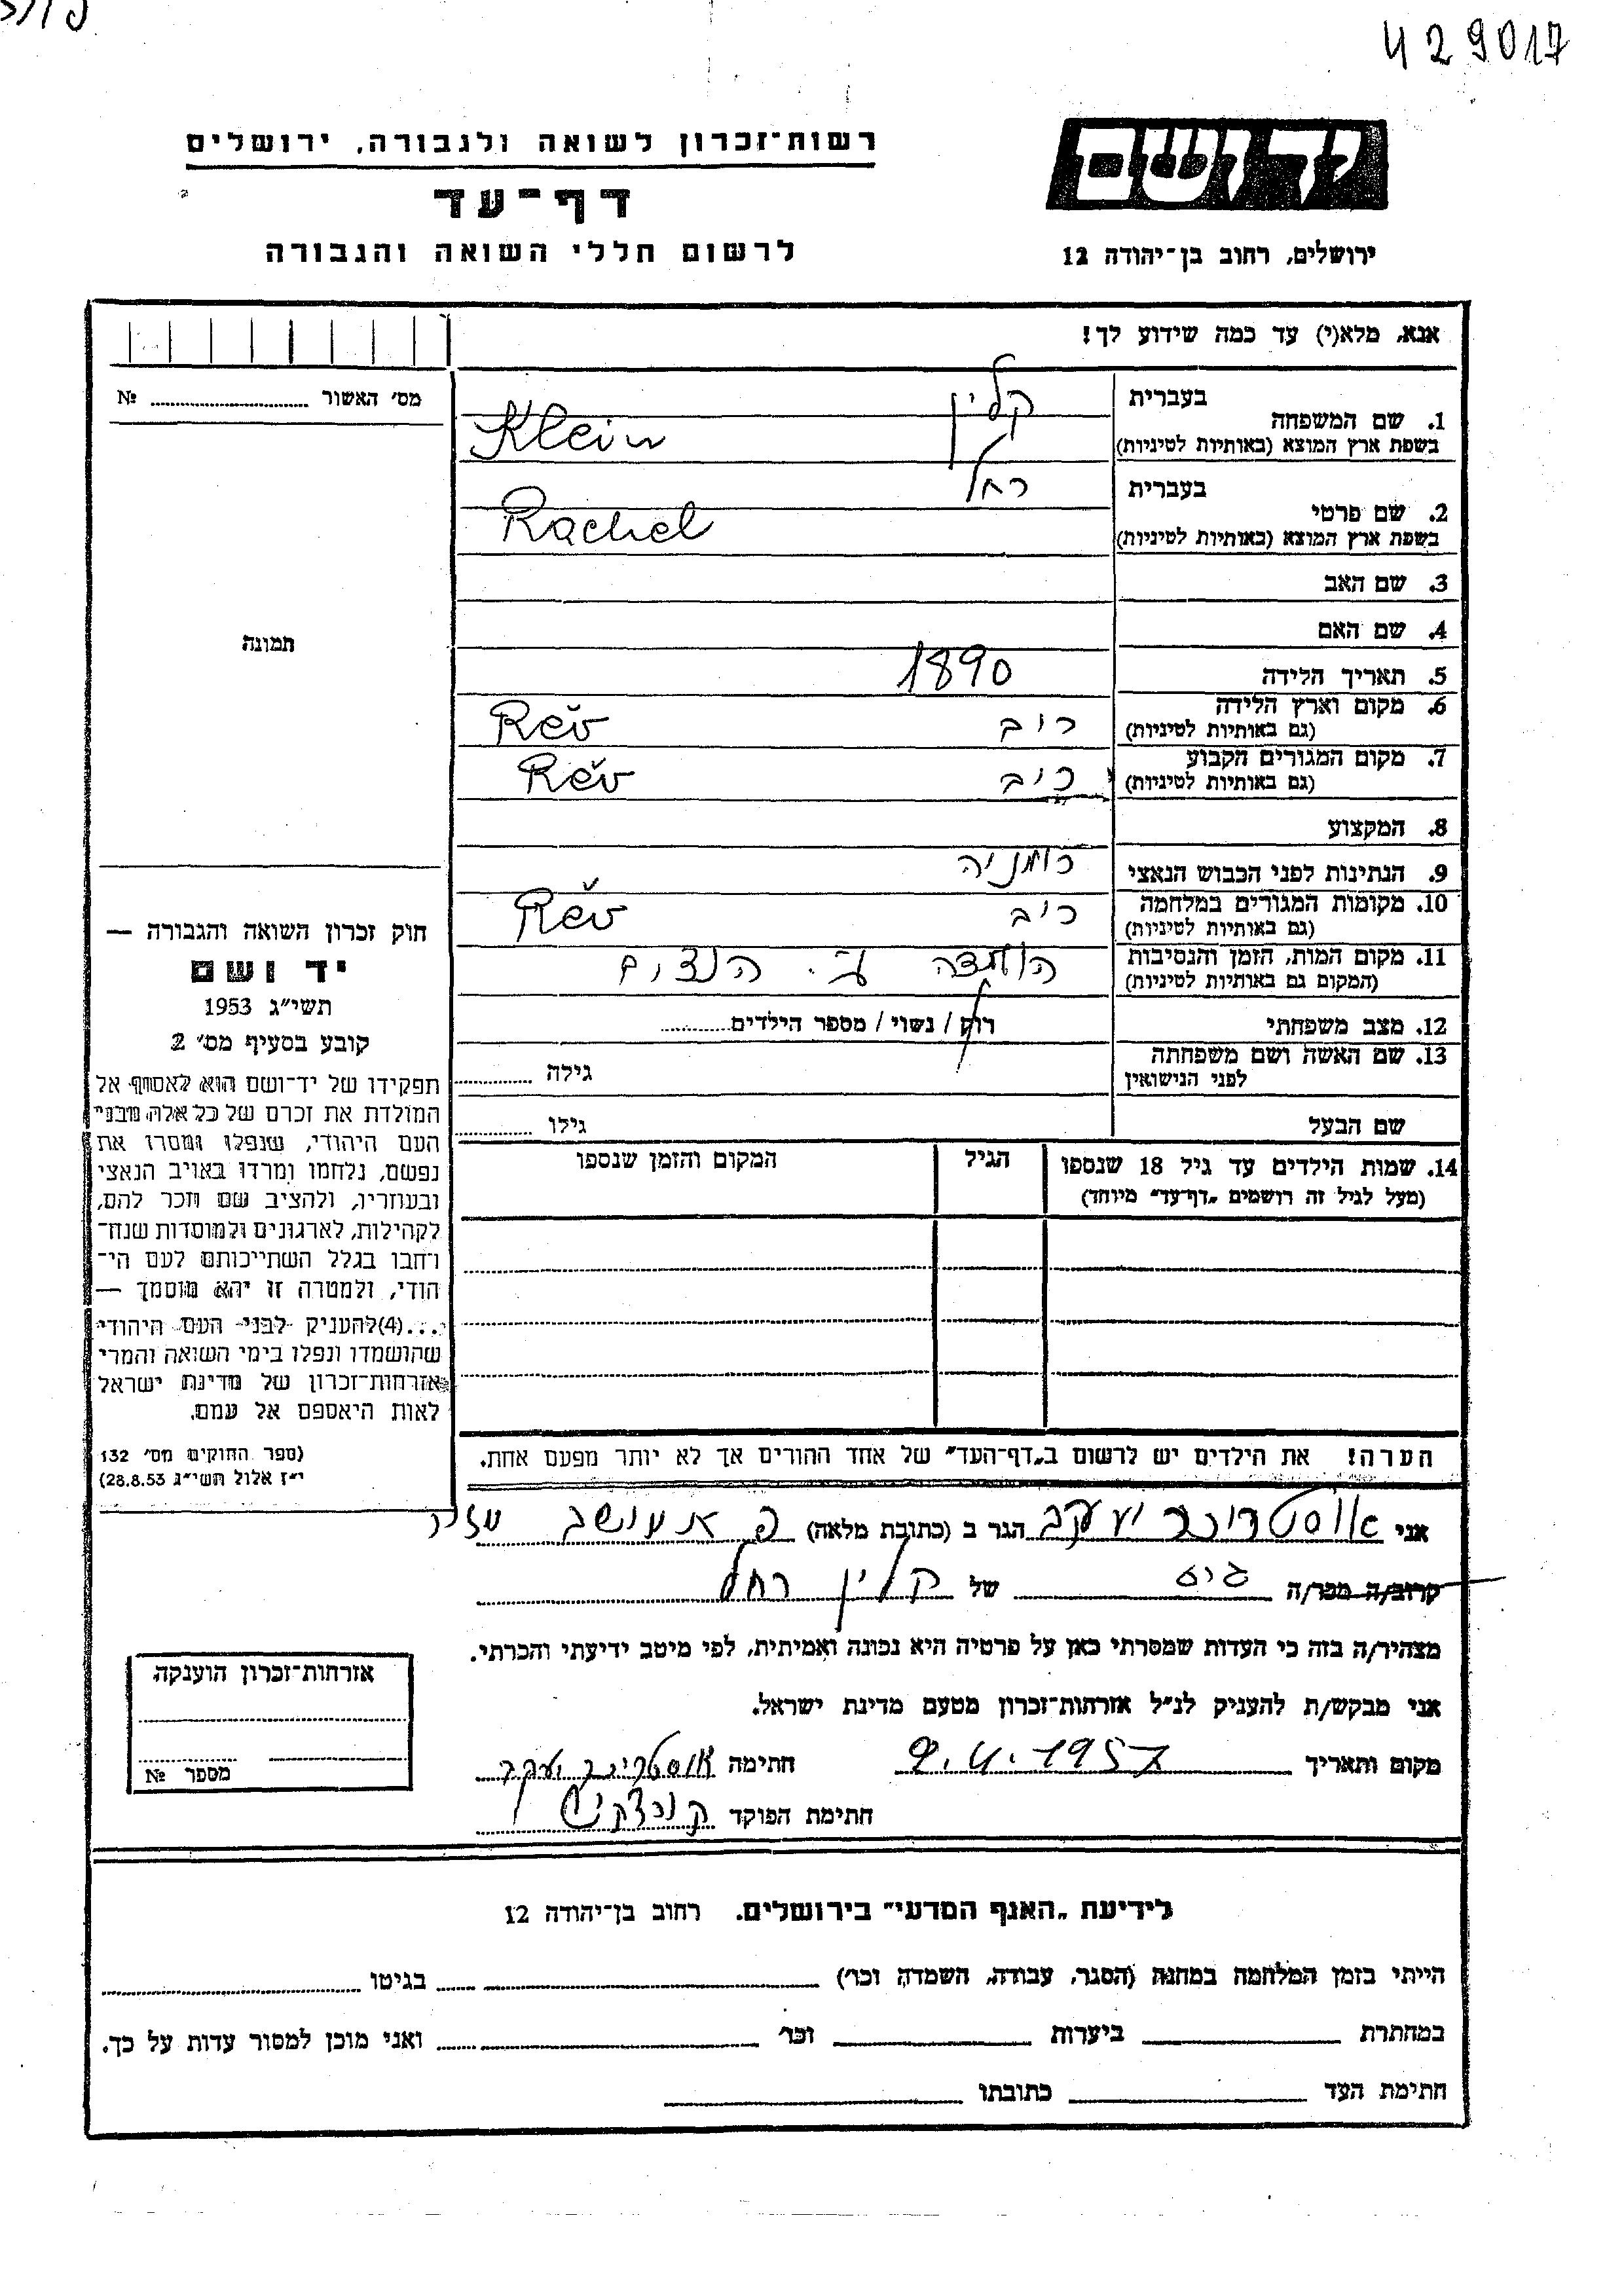 429017
יד ושם
רשות־זכרון לשואה ולגבורה, ירושלים
דף־עד
לרשום חללי השואה והגבורה
ירושלים, רחוב בן־יהודה 12
אנא, מלא(י) עד כמה שידוע לך!
מס׳ האשור ........ №
1. שם המשפחה
בעברית קלין
בשפת ארץ המוצא (באותיות לטיניות) Klein
2. שם פרטי
בעברית רחל
בשפת ארץ המוצא (באותיות לטיניות) Rachel
3. שם האב
4. שם האם
5. תאריך הלידה 1890
6. מקום וארץ הלידה
(גם באותיות לטיניות) ריב Rev
7. מקום המגורים הקבוע
(גם באותיות לטיניות) ריב Rev
8. המקצוע
9. הנתינות לפני הכבוש הנאצי רומניה
10. מקומות המגורים במלחמה
(גם באותיות לטיניות) ריב Rev
11. מקום המות, הזמן והנסיבות
(המקום גם באותיות לטיניות)
12. מצב משפחתי רוק / נשוי / מספר הילדים........
13. שם האשה ושם משפחתה
לפני הנישואין גילה ........
שם הבעל גילו ........
14. שמות הילדים עד גיל 18 שנספו
(מעל לגיל זה רושמים „דף־עד״ מיוחד)
הגיל
המקום והזמן שנספו
הערה! את הילדים יש לרשום ב„דף־העד״ של אחד ההורים אך לא יותר מפעם אחת.
תמונה
חוק זכרון השואה והגבורה —
יד ושם
תשי״ג 1953
קובע בסעיף מס׳ 2
תפקידו של יד־ושם הוא לאסוף אל
המולדת את זכרם של כל אלה מבני
העם היהודי, שנפלו ומסרו את
נפשם, נלחמו ומרדו באויב הנאצי
ובעוזריו, ולהציב שם וזכר להם,
לקהילות, לארגונים ולמוסדות שנח־
רחבו בגלל השתייכותם לעם הי־
הודי, ולמטרה זו יהא מוסמך —
...(4)להעניק לבני העם היהודי
שהושמדו ונפלו בימי השואה והמרי
אזרחות־זכרון של מדינת ישראל
לאות היאספם אל עמם.
(ספר החוקים מס׳ 132
י״ז אלול תשי״ג 28.8.53)
אני יעקב הגר ב (כתובת מלאה) מושב
קרוב/ה מכר/ה גיס של קלין רחל
מצהיר/ה בזה כי העדות שמסרתי כאן על פרטיה היא נכונה ואמיתית, לפי מיטב ידיעתי והכרתי.
אני מבקש/ת להעניק לנ״ל אזרחות־זכרון מטעם מדינת ישראל.
מקום ותאריך 9.4.1957 חתימה יעקב
חתימת הפוקד
אזרחות־זכרון הוענקה
מספר №
לידיעת „האגף המדעי״ בירושלים. רחוב בן־יהודה 12
הייתי בזמן המלחמה במחנה (הסגר, עבודה, השמדה וכו׳) ........ בגיטו ........
במחתרת ........ ביערות ........ וכו׳ ........ ואני מוכן למסור עדות על כך.
חתימת העד ........ כתובתו ........